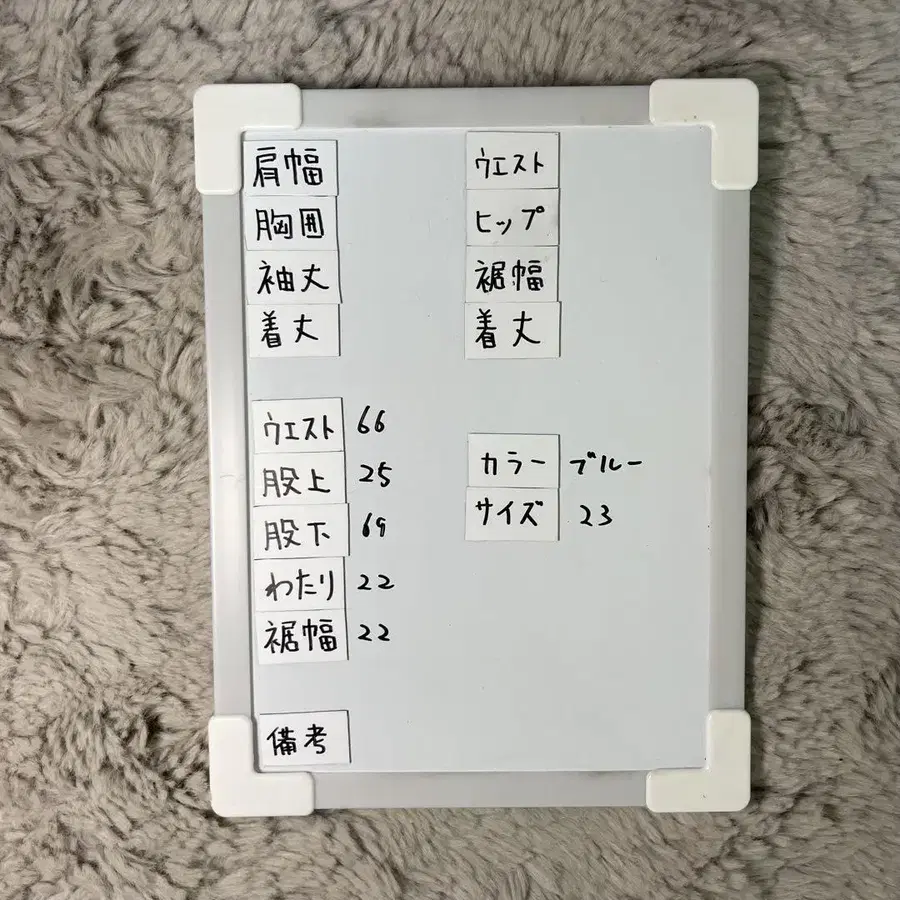 肩幅
胸囲
袖丈
着丈
ウエスト
ヒップ
裾幅
着丈
ウエスト 66
股上 25
股下 69
わたり 22
裾幅 22
カラー ブルー
サイズ 23
備考